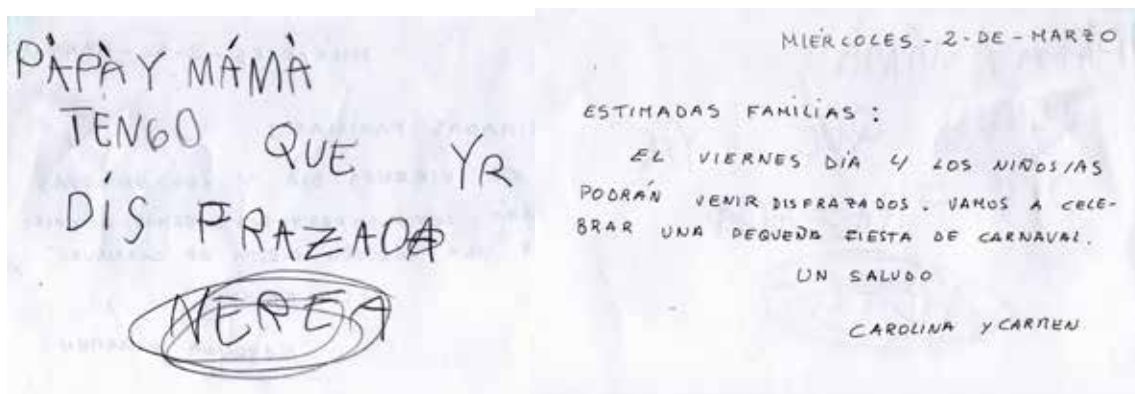 PÁPÀ Y MÁMÀ
TENGO QUE YR
DÍS FRAZADA
NEREA
MIÉRCOLES - 2 - DE - MARZO
ESTIMADAS FAMILIAS :
EL VIERNES DÍA 4 LOS NIÑOS/AS
PODRÁN VENIR DISFRAZADOS. VAMOS A CELE-
BRAR UNA PEQUEÑA FIESTA DE CARNAVAL.
UN SALUDO
CAROLINA Y CARMEN